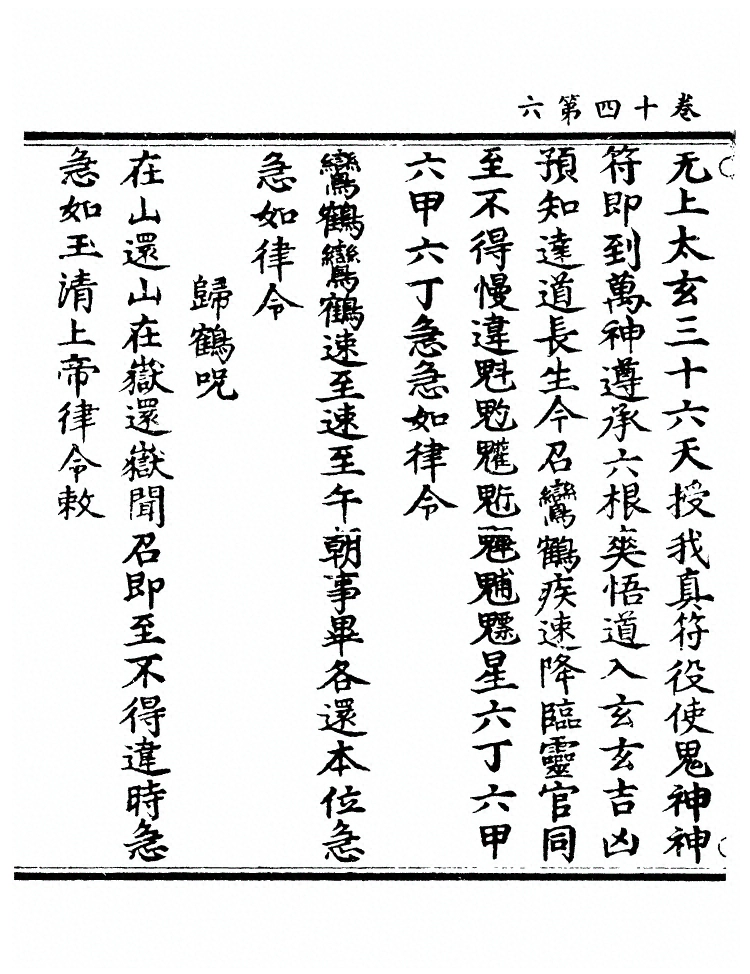 卷十四第六
无上太玄三十六天授我真符役使鬼神神
符即到萬神遵承六根爽悟道入玄玄吉凶
預知達道長生今召鸞鶴疾速降臨靈官同
至不得慢違魁𩲃𩵄䰢魓䰠魒星六丁六甲
六甲六丁急急如律令
鸞鶴鸞鶴速至速至午朝事畢各還本位急
急如律令
歸鶴呪
在山還山在嶽還嶽聞召即至不得違時急
急如玉清上帝律令敕